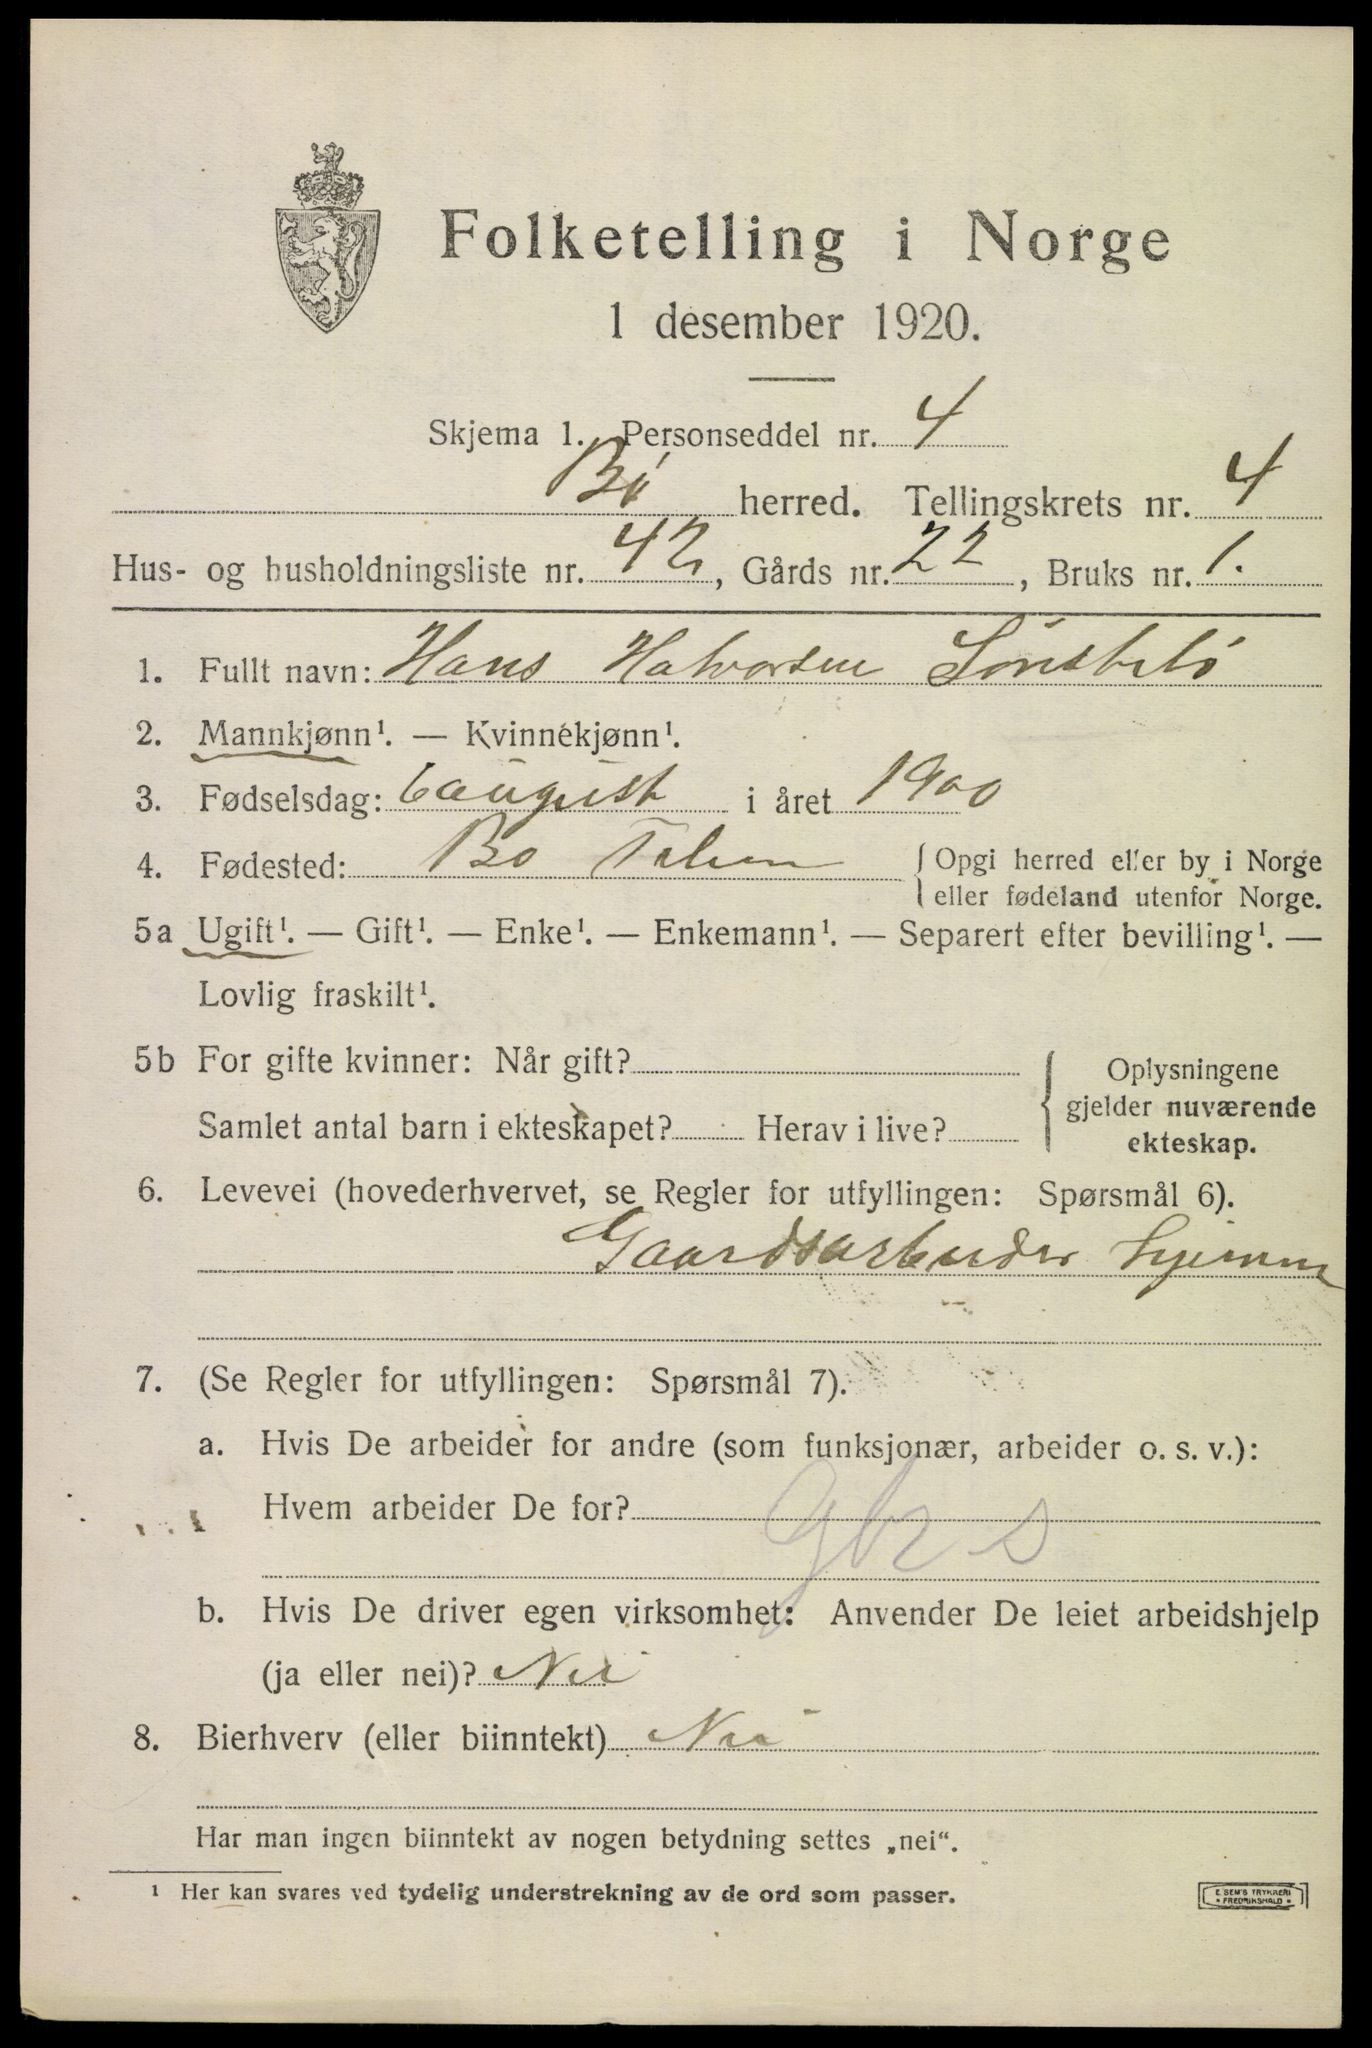 Folketelling i Norge
1 desember 1920.
Skjema 1. Personseddel nr. 4
Bø herred. Tellingskrets nr. 4
Hus- og husholdningsliste nr. 42, Gårds nr. 22, Bruks nr. 1.
1. Fullt navn: Hans Halvorsen
2. Mannkjønn¹. — Kvinnekjønn¹.
3. Fødselsdag: 6 august i året 1900
4. Fødested: Bø { Opgi herred eller by i Norge
eller fødeland utenfor Norge.
5a Ugift¹. — Gift¹. — Enke¹. — Enkemann¹. — Separert efter bevilling¹. —
Lovlig fraskilt¹.
5b For gifte kvinner: Når gift?
Samlet antal barn i ekteskapet? Herav i live?
Oplysningene
gjelder nuværende
ekteskap.
6. Levevei (hovederhvervet, se Regler for utfyllingen: Spørsmål 6).
Gaardsarbeider hjemme
7. (Se Regler for utfyllingen: Spørsmål 7).
a. Hvis De arbeider for andre (som funksjonær, arbeider o. s. v.):
Hvem arbeider De for?
b. Hvis De driver egen virksomhet: Anvender De leiet arbeidshjelp
(ja eller nei)? Nei
8. Bierhverv (eller biinntekt) Nei
Har man ingen biinntekt av nogen betydning settes „nei“.
¹ Her kan svares ved tydelig understrekning av de ord som passer.
E. SEM'S TRYKKERI
FREDRIKSHALD